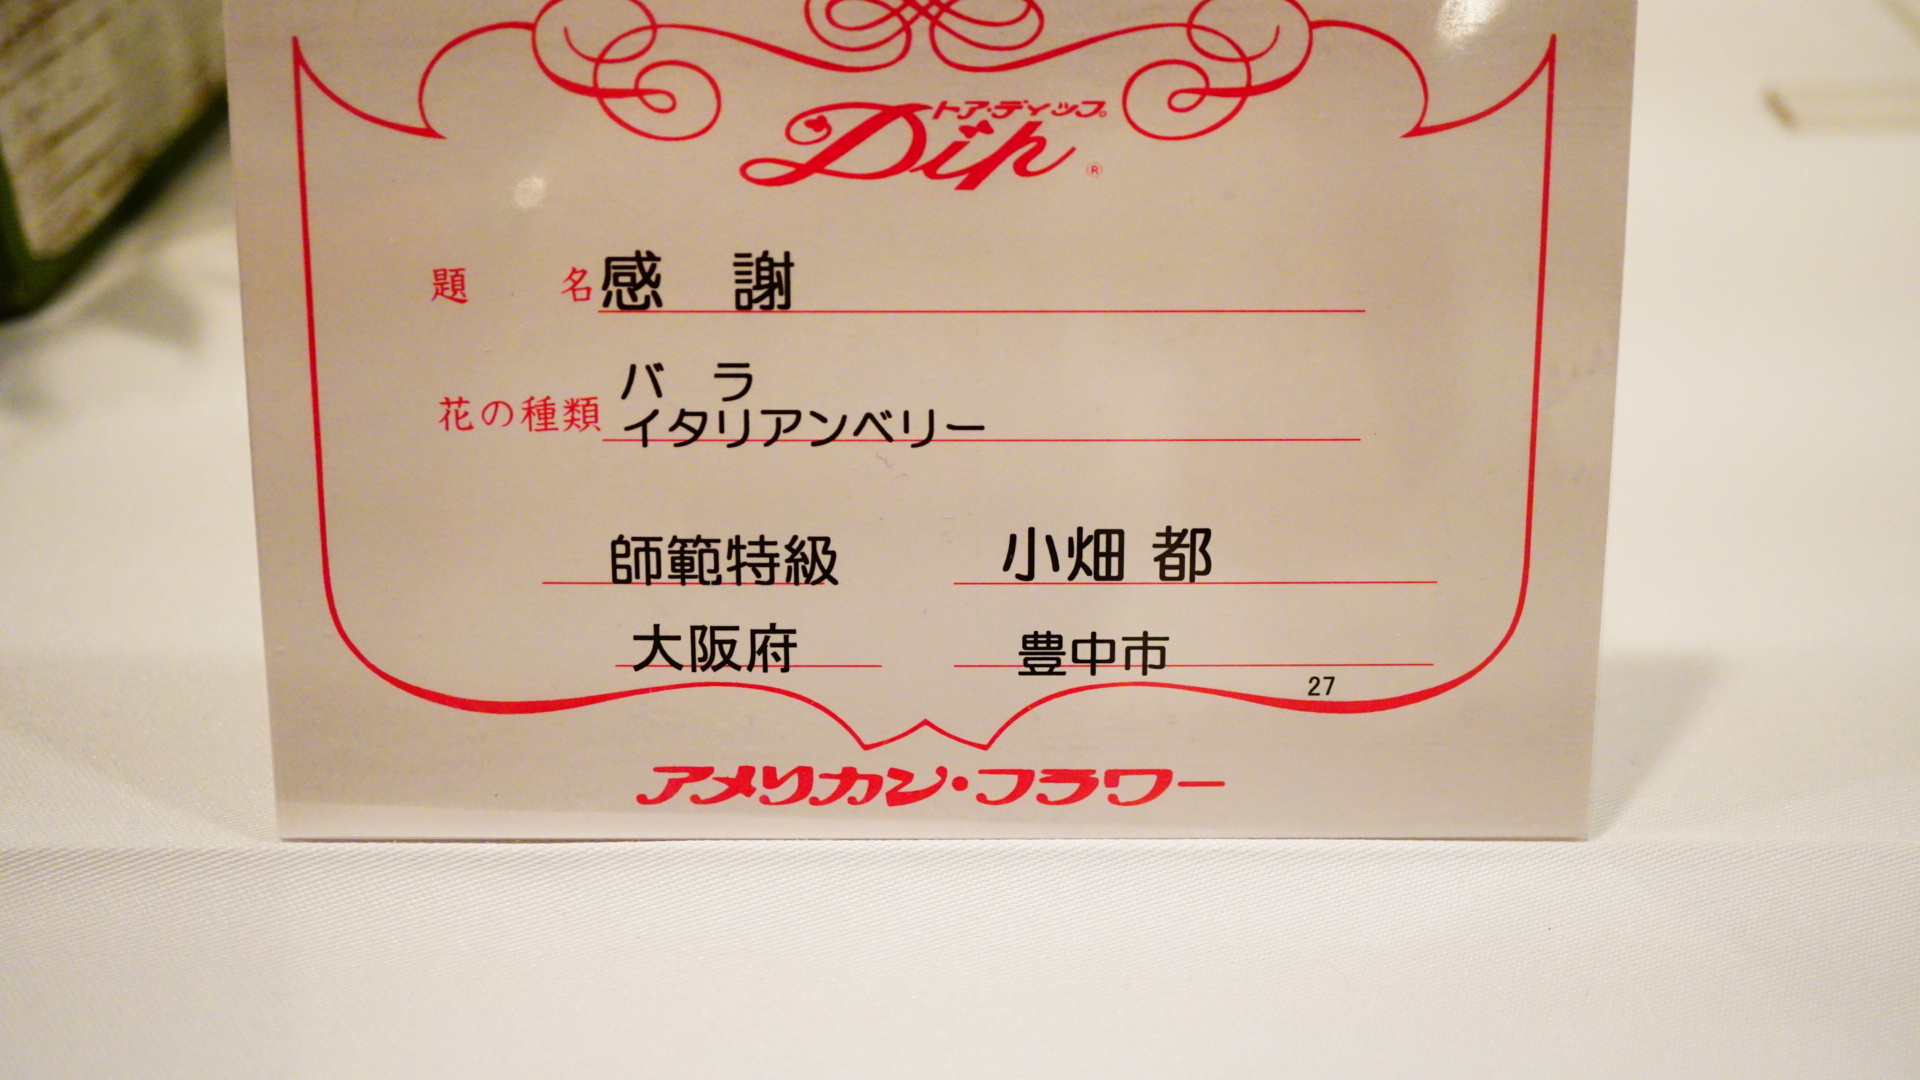 トア・ディップ®
Dip ®
題 名 感 謝
花の種類 バ ラ
イタリアンベリー
師範特級 小畑 都
大阪府 豊中市
27
アメリカン・フラワー